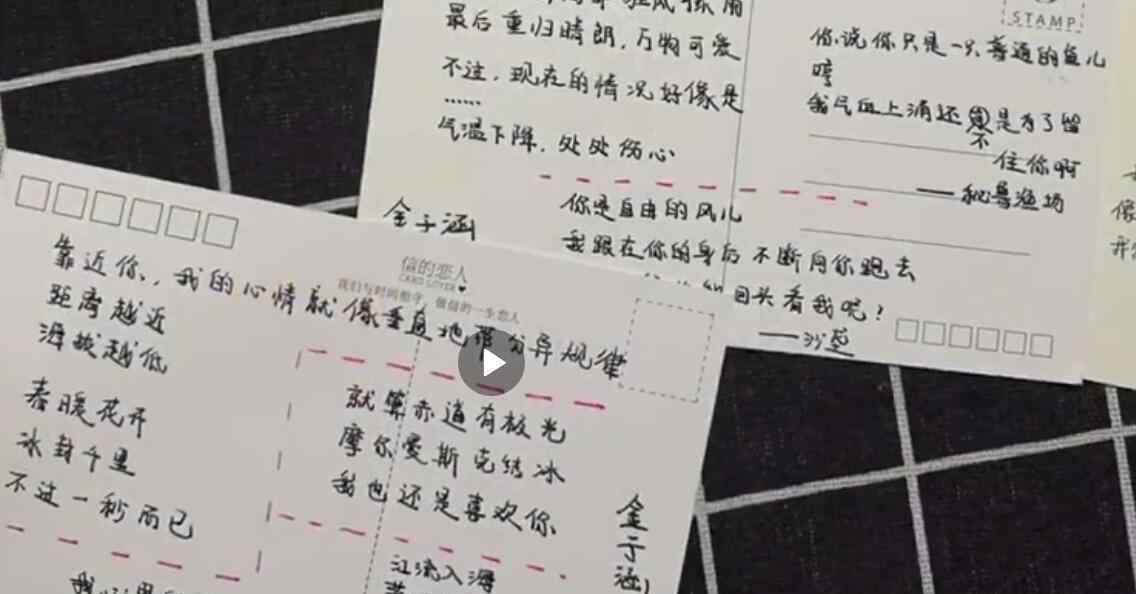 最后重归晴朗,万物可爱
不过,现在的情况好像是
……
气温下降,处处伤心
金子涵
STAMP
你说你只是一只普通的鱼儿
哼
我气血上涌还不是为了留
住你啊
——秘鲁渔场
你是自由的风儿
我跟在你的身后不断向你跑去
回头看我呢?
——沙
靠近你,我的心情就像垂直地带分异规律
距离越近
海拔越低
春暖花开
冰封千里
不过一秒而已
信的恋人
CARD LOVER
就算赤道有极光
摩尔曼斯克结冰
我也还是喜欢你
金子涵
江流入海